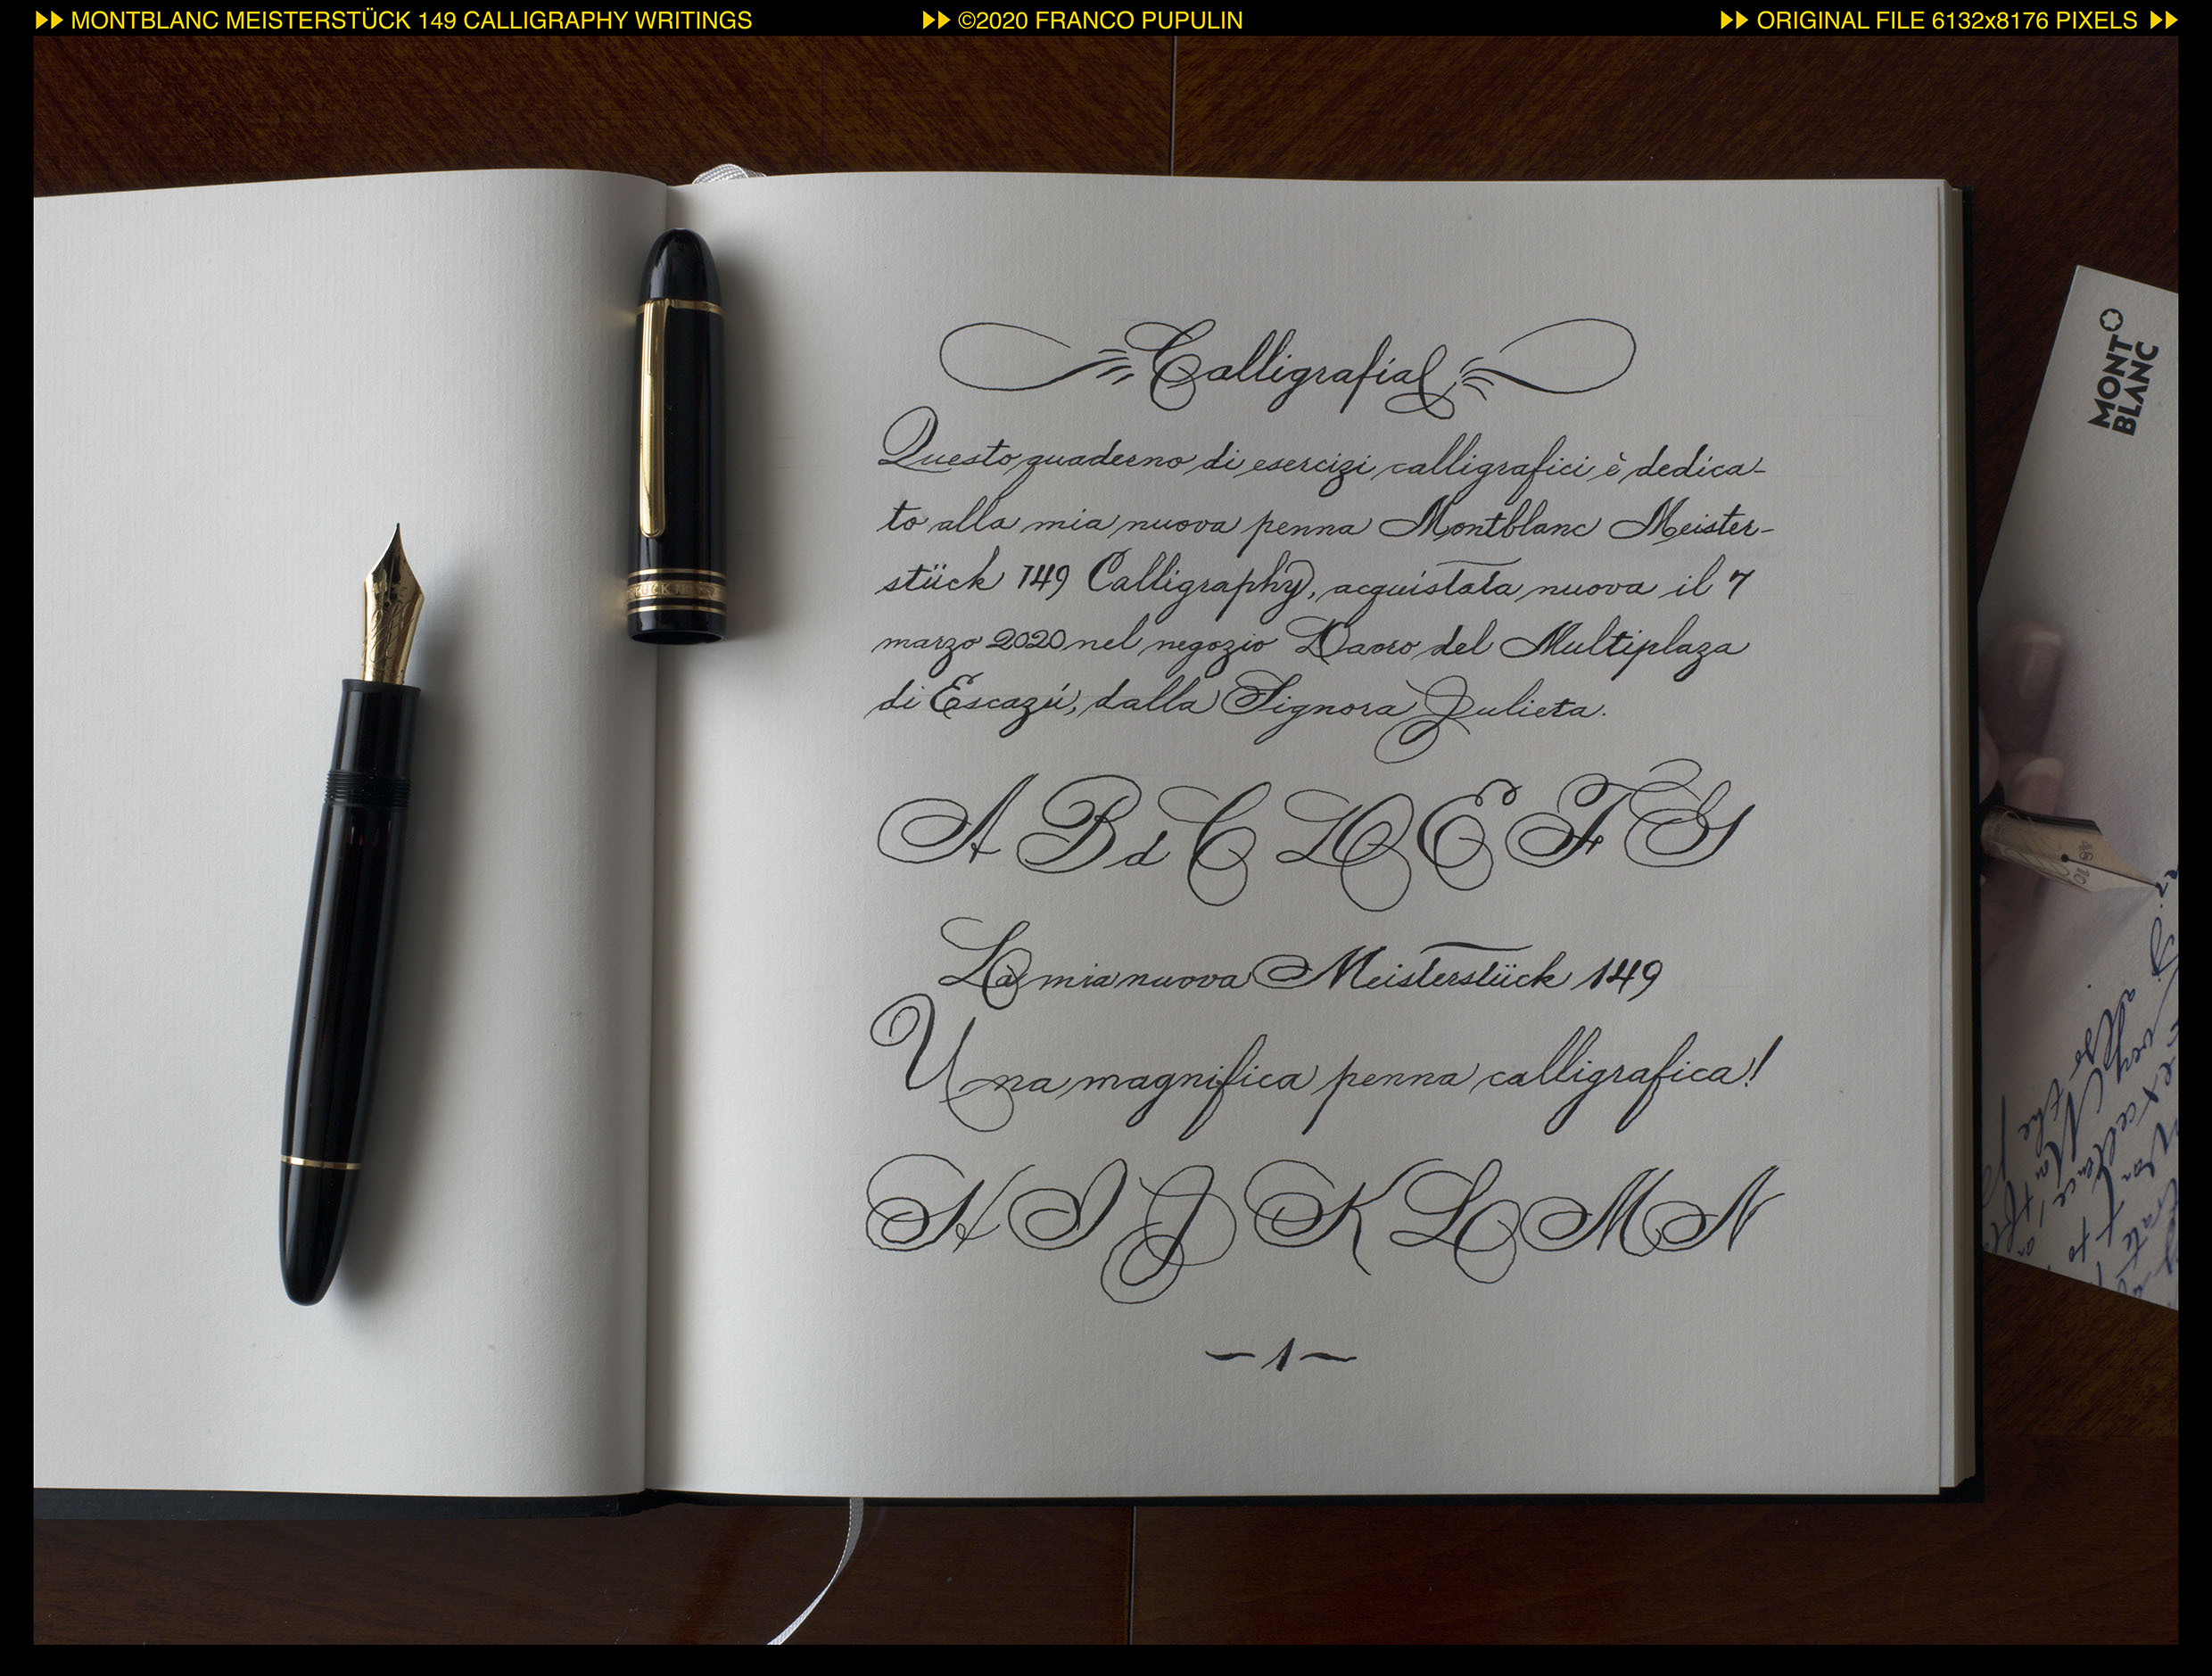 MONTBLANC MEISTERSTÜCK 149 CALLIGRAPHY WRITINGS
©2020 FRANCO PUPULIN
ORIGINAL FILE 6132x8176 PIXELS
Calligrafia
Questo quaderno di esercizi calligrafici è dedica-
to alla mia nuova penna Montblanc Meister-
stück 149 Calligraphy, acquistata nuova il 7
marzo 2020 nel negozio Davro del Multiplaza
di Escazú, dalla Signora Julieta.
A B d C D E F G
La mia nuova Meisterstück 149
Una magnifica penna calligrafica!
H I J K L M N
– 1 –
MONT
BLANC
4810